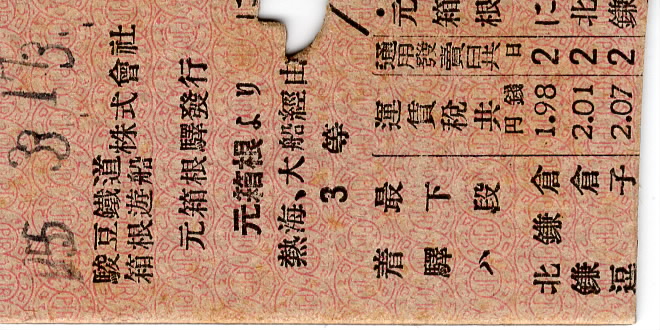 15 8.17.3
駿豆鐵道株式會社
箱根遊船
元箱根驛發行
元箱根より
に
熱海、大船經由
3 等
元箱根に北鎌
通用發賣日共 日 2 2 2
運賃税共 円錢 1.98 2.01 2.07
着驛
最下段ハ
北鎌倉
鎌倉
逗子